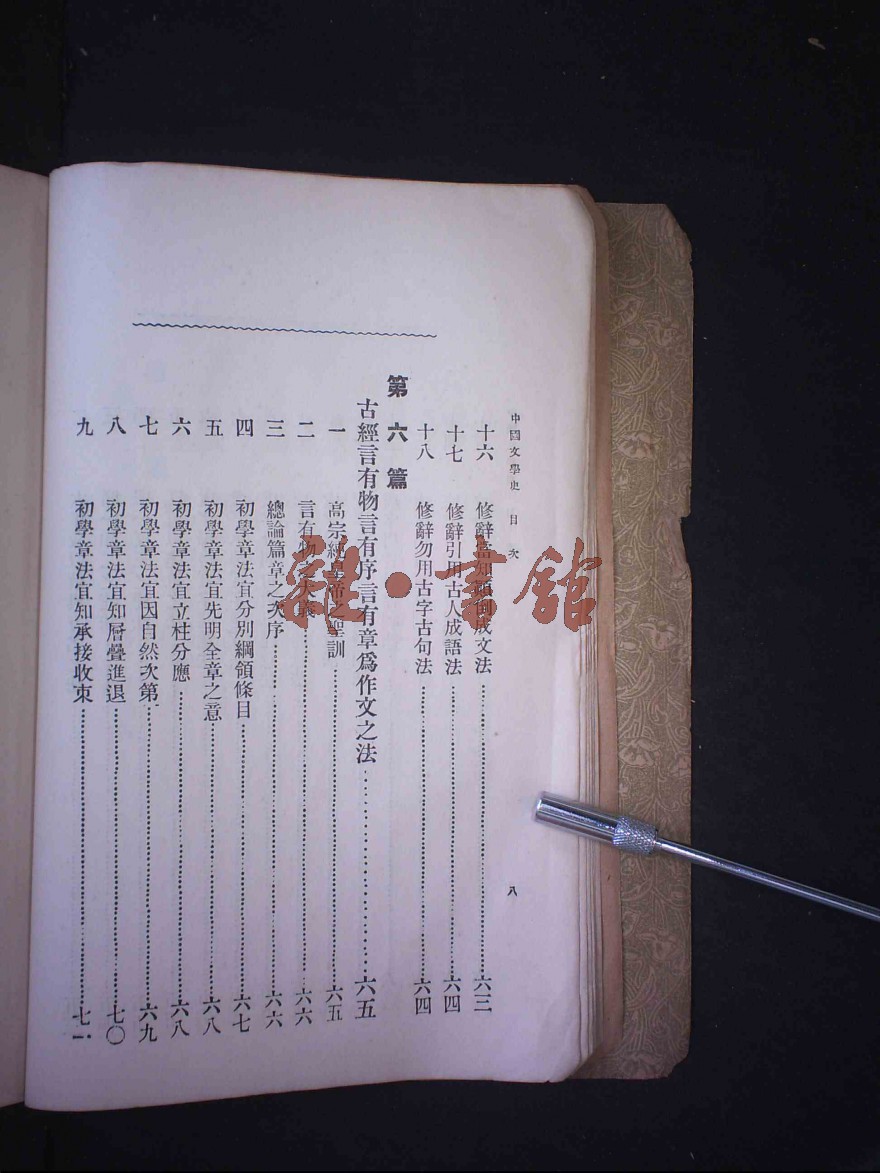 中國文學史 目次
八
十六 修辭當知顚倒成文法 六三
十七 修辭引用古人成語法 六四
十八 修辭勿用古字古句法 六四
第六篇
古經言有物言有序言有章爲作文之法 六五
一 高宗純皇帝之聖訓 六五
二 言有物之大義 六六
三 總論篇章之次序 六六
四 初學章法宜分別綱領條目 六七
五 初學章法宜先明全章之意 六八
六 初學章法宜立柱分應 六八
七 初學章法宜因自然次第 六九
八 初學章法宜知層疊進退 七〇
九 初學章法宜知承接收束 七一
雜·書館